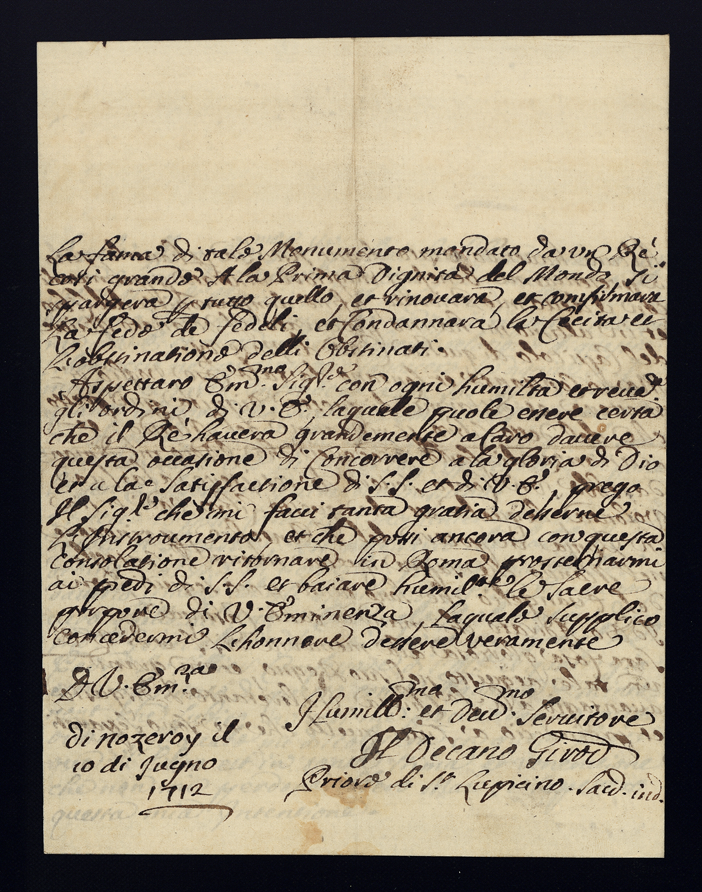 La fama di tale Monumento mandato da un Ré
cosi grande A la Prima Dignita del Mondo si
spargera p tutto quello, et rinovara, et confirmara
La fede de fedeli, et Condannara la Cecita et
L'obstinatione delli Obstinati
Aspettaro Em.ma Sig.re con ogni humilta et
gli ordini di V. E. laquale puole essere certa
che il Ré havera grandemente a Caro davere
questa occasione di Concorrere a la gloria di Dio
et a la Satisfactione di S.S. et di V. E. prego
Il Sig.re che mi facci tanta gratia desserne
L'Instroumento et che possi ancora con questa
Consolatione ritornare in Roma prosternarmi
ai piedi di S.S. et baiare humil.te le Sacre
porpore di V. Eminenza, Laquale supplico
Concedermi L'honnore dessere veramente
D V. Em.za
Humill.ma et Dev.mo Servitore
di nozeroy il
Il Decano Girod
10 di Jugno
Priore di S.to Luppicino. Sacd. ind.
1712